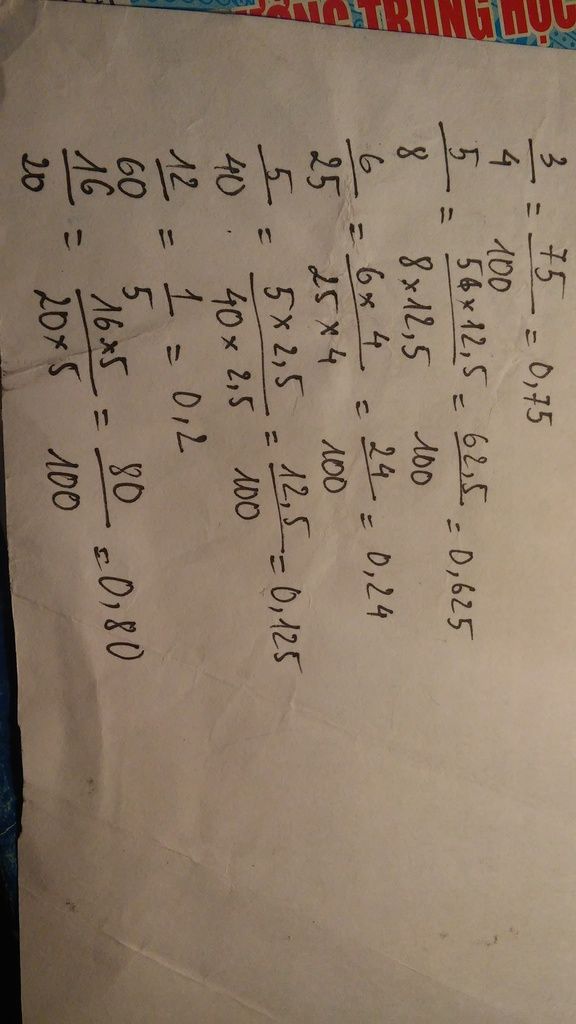 TRUNG HỌC
3/4 = 75/100 = 0,75
5/8 = 56×12,5/8×12,5 = 62,5/100 = 0,625
6/25 = 6×4/25×4 = 24/100 = 0,24
5/40 = 5×2,5/40×2,5 = 12,5/100 = 0,125
12/60 = 1/5 = 0,2
16/20 = 16×5/20×5 = 80/100 = 0,80